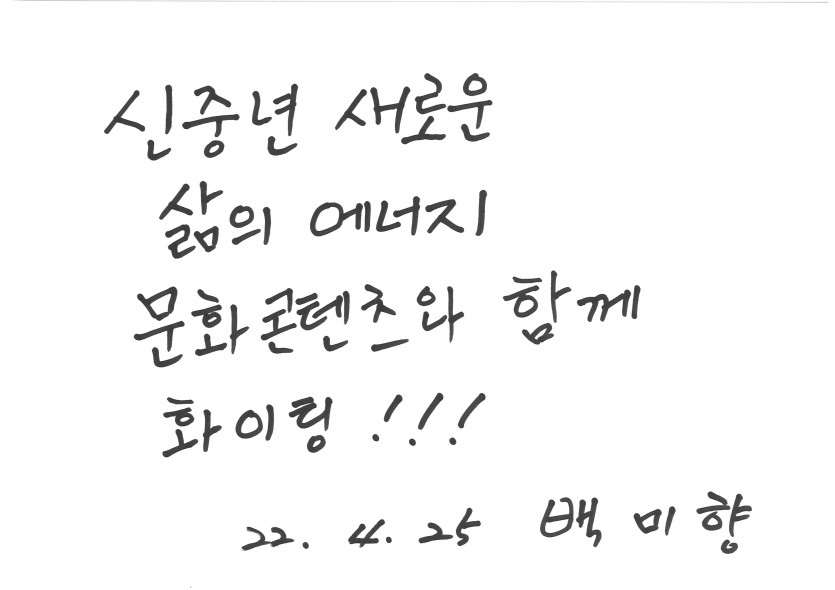 신중년 새로운
삶의 에너지
문화콘텐츠와 함께
화이팅 !!!
22. 4. 25 백미향